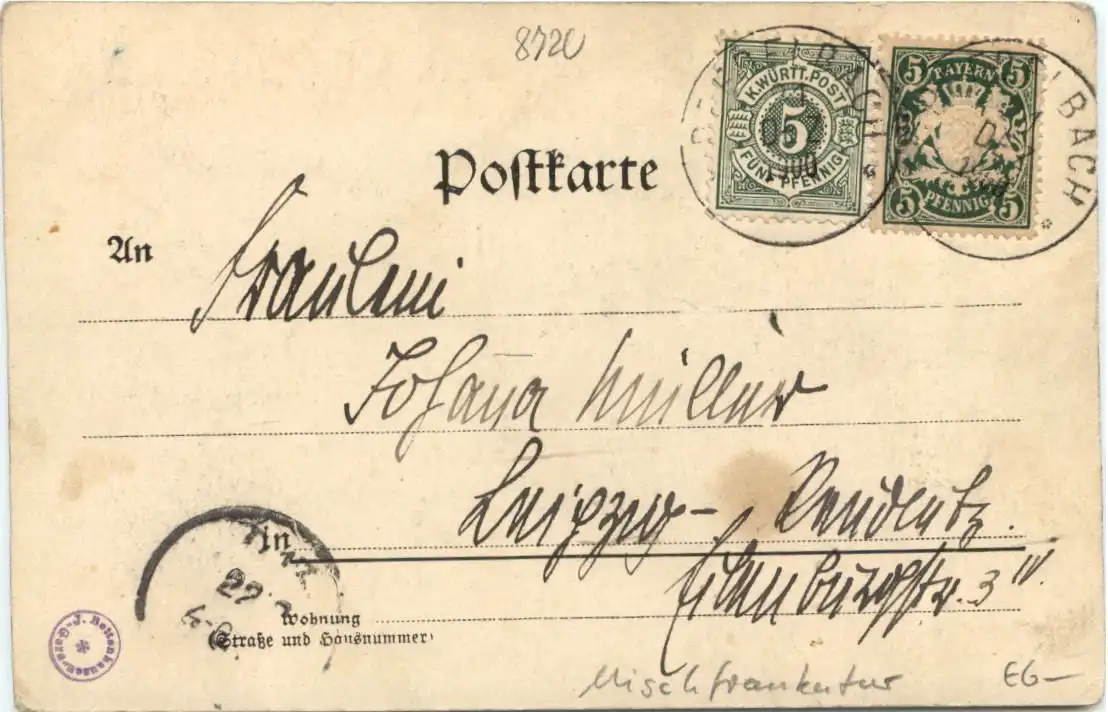 8720
K. WÜRTT. POST
5
FÜNF PFENNIG
1900
5 BAYERN 5
5 PFENNIG 5
BACH
Postkarte
An
Fräulein
Johanna Müller
in
Leipzig-Reudnitz.
Eilenburgstr. 3 II.
22
Wohnung
(Straße und Hausnummer)
Mischfrankatur
EG-